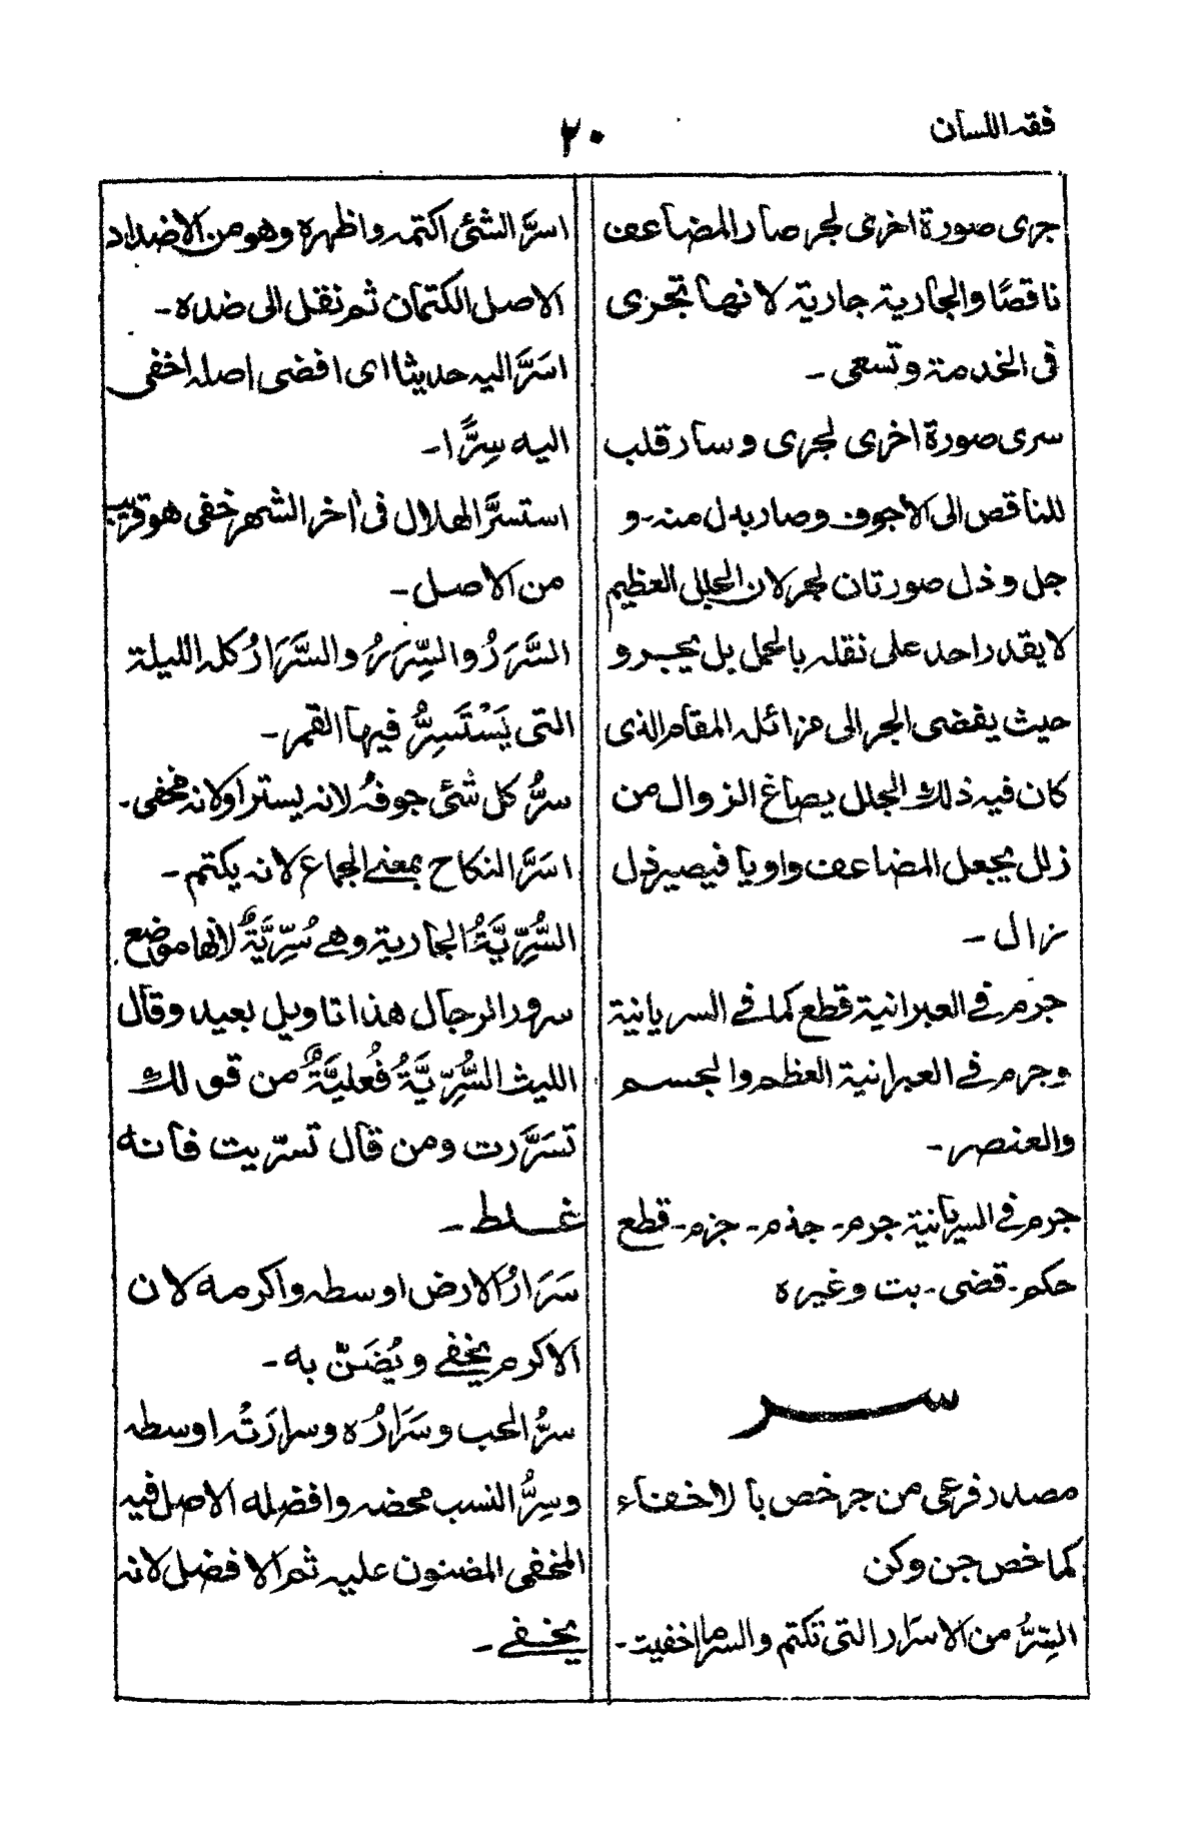 فقه اللسان
٢٠
جرى صورة اخرى لجر صار المضاعف
ناقصًا والجارية جارية لانها تجرى
فى الخدمة وتسعى -
سرى صورة اخرى لجرى وسار قلب
للناقص الى الأجوف وصار بدل منه - و
جل وذل صورتان لجر لان الجلل العظيم
لا يقدر احد على نقله بالحمل بل يجر و
حيث يفضى الجر الى مزائله المقام الذى
كان فيه ذلك الجلل يصاغ الزوال من
زلل يجعل المضاعف واويا فيصير ذل
زال -
جرم فى العبرانية قطع كما فى السريانية
وجرم فى العبرانية العظم والجسم
والعنصر -
جرم فى السريانية جرم - جذم - جزم - قطع
حكم - قضى - بت وغيره
سر
مصدر فرعى من جر خص بالاخفاء
كما خص جن وكن
السِرُّ من الاسرار التى تكتم والسر ما اخفيت -
اسرَّ الشئ اكتمه واظهره وهو من الاضداد
الاصل الكتمان ثم نقل الى ضده -
اسَرَّ اليه حديثا اى افضى اصله اخفى
اليه سِرًّا -
استسرَّ الهلال فى اخر الشهر خفى هو قريب
من الاصل -
السَّرَرُ والسِّرَرُ والسَّرَارُ كله الليلة
التى يَسْتَسِرُّ فيها القمر -
سرُّ كل شئ جوفهُ لانه يستر اولانه مخفى -
اسَرَّ النكاح بمعنى الجماع لانه يكتم -
السُّرِّيَّةُ الجارية وهى سُرِّيَّةٌ لانها موضع
سرور الرجال هذا تاويل بعيد وقال
الليث السُّرِّيَّةُ فُعليَّةٌ من قولك
تسَرَّرت ومن قال تسرّيت فانه
غلط -
سَرَارُ الارض اوسطه واكرمه لان
الاكرم يخفى ويُضَنّ به -
سرُّ الحب وسَرَارُه وسرارَتُه اوسطه
وسِرُّ النسب محضه وافضله الاصل فيه
المخفى المضنون عليه ثم الافضل لانه
يخفى -